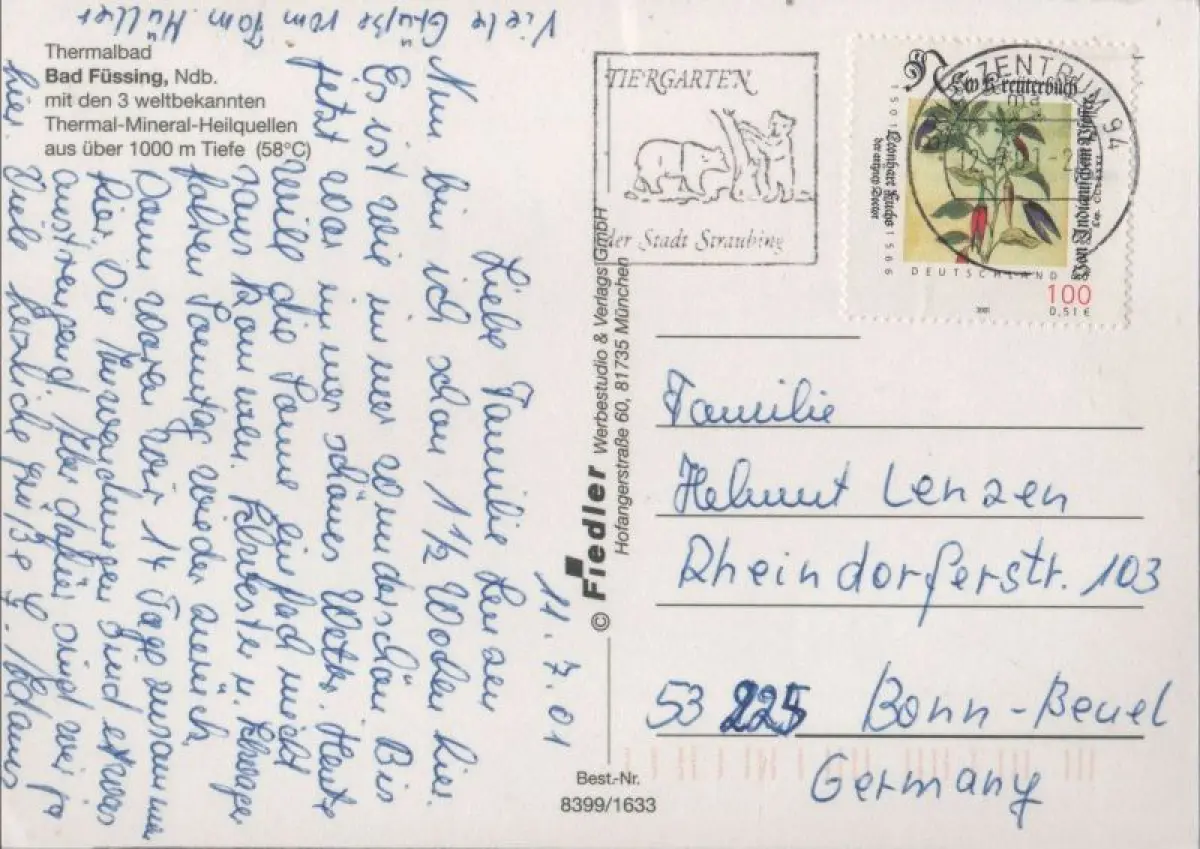 Thermalbad
Bad Füssing, Ndb.
mit den 3 weltbekannten
Thermal-Mineral-Heilquellen
aus über 1000 m Tiefe (58°C)
11.7.01
Liebe Familie Lenzen
Nun bin ich schon 1 1/2 Wochen hier.
Es ist wie immer wunderschön. Bis
jetzt war immer schönes Wetter. Heute
will die Sonne einfach nicht
raus kommen. Schwester u. Schwager
fahren Sonntag wieder
Dann waren wir 14 Tage zusammen
hier. Die Anwendungen sind etwas
anstrengend. Aber dafür sind wir ja
hier.
Viele herzliche Grüße
Viele Grüße von Fam. Müller
© Fiedler Werbestudio & Verlags GmbH
Hofangerstraße 60, 81735 München
Best.-Nr.
8399/1633
TIERGARTEN
der Stadt Straubing
ZENTRUM 94
New Kreüterbuch
1501 Leonhart Fuchs 1566
der artzney Doctor
DEUTSCHLAND
100
0,51 €
2001
Familie
Helmut Lenzen
Rheindorferstr. 103
53 225 Bonn-Beuel
Germany